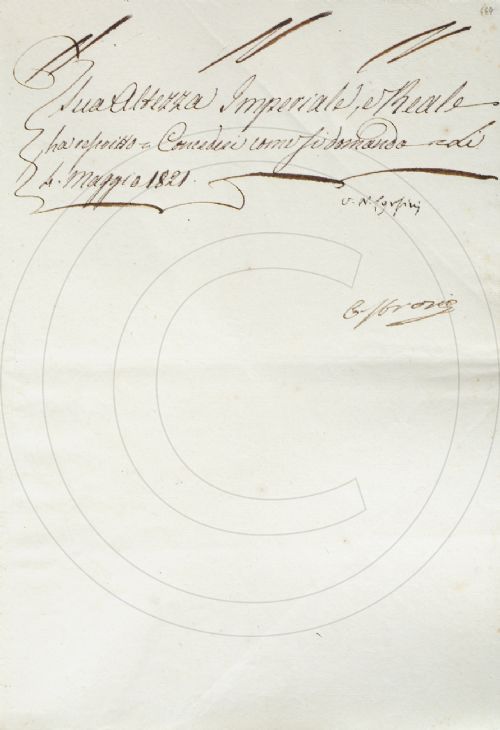 Sua Altezza Imperiale, e Reale
ha rescritto = Concedesi come si domanda = Li
4. Maggio 1821.
V. N. Corsini